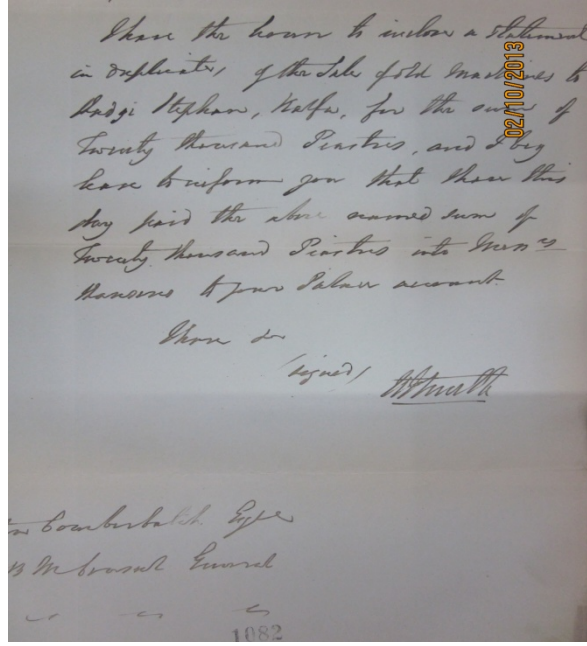 I have the honor to inclose a Statement
in duplicate, of the Sale of old Machines to
Hadgi Stephan, Kalfa, for the sum of
Twenty thousand Piastres, and I beg
leave to inform you that I have this
day paid the above named sum of
Twenty thousand Piastres into Messrs
Hansons to your Palmer account.
I have &c
(signed)
Cumberbatch Esqre
H B M Consul General
" " "
1082
02/10/2013